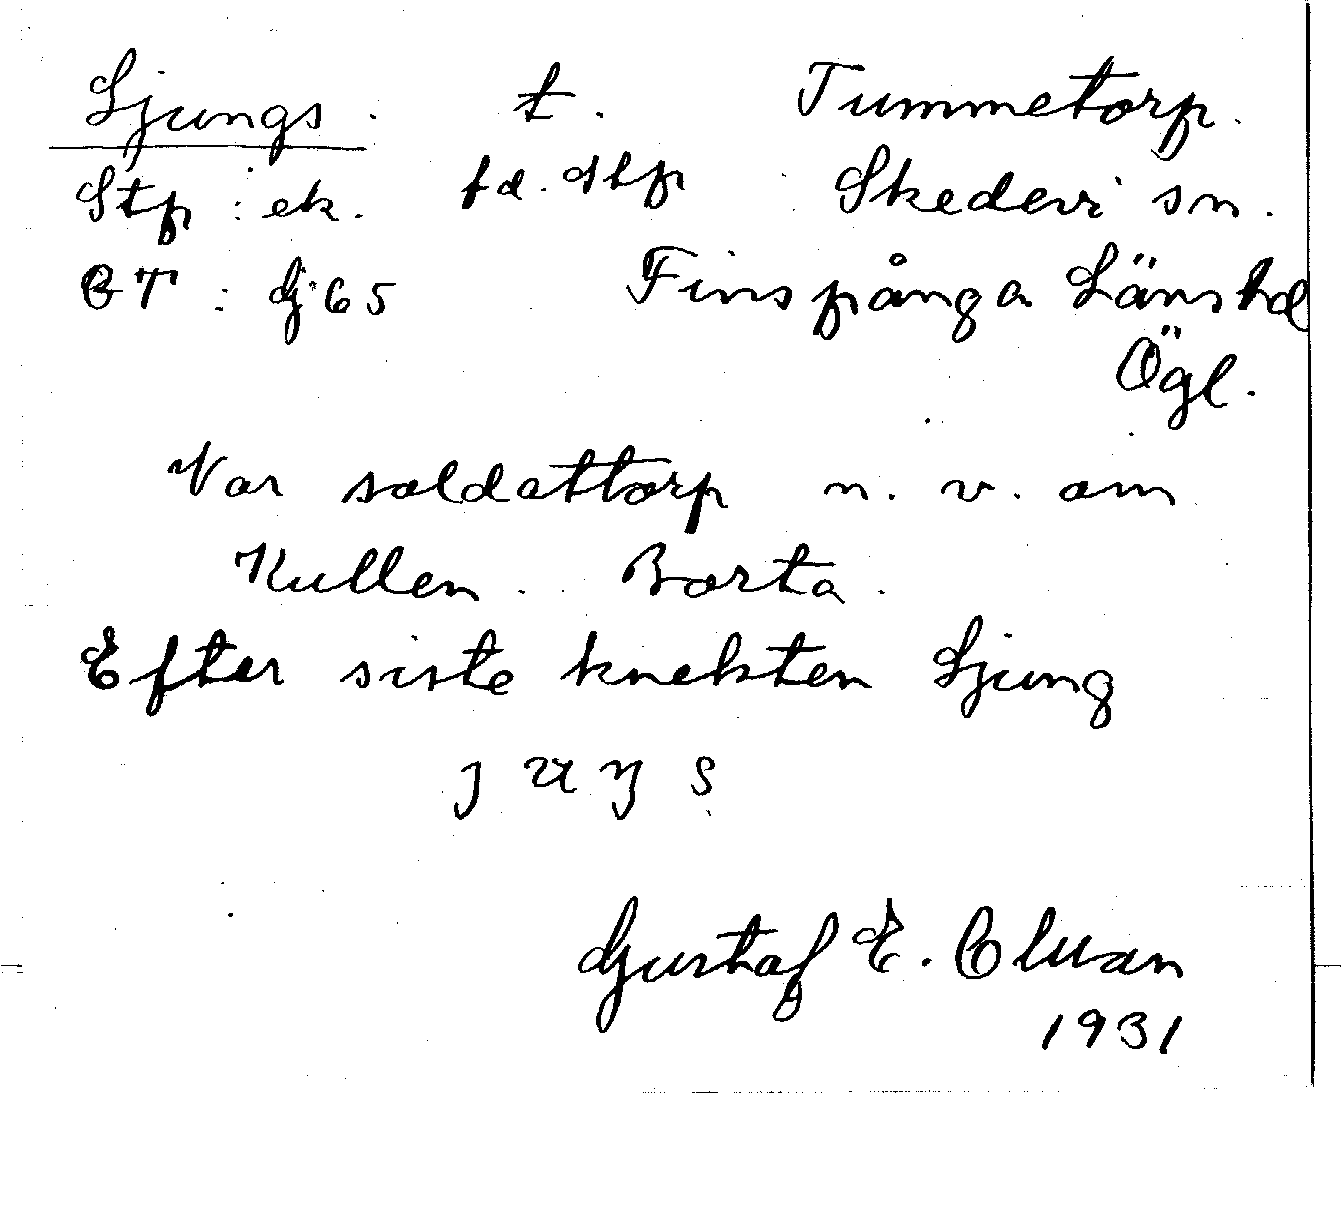 Ljungs. t. Tummetorp.
Stp : ek. fd. stp Skedevi sn.
GT : G 65 Finspånga Länshd
Ögl.
Var soldattorp n. v. om
Kullen. Borta.
Efter siste knekten Ljung
Gustaf E.
1931